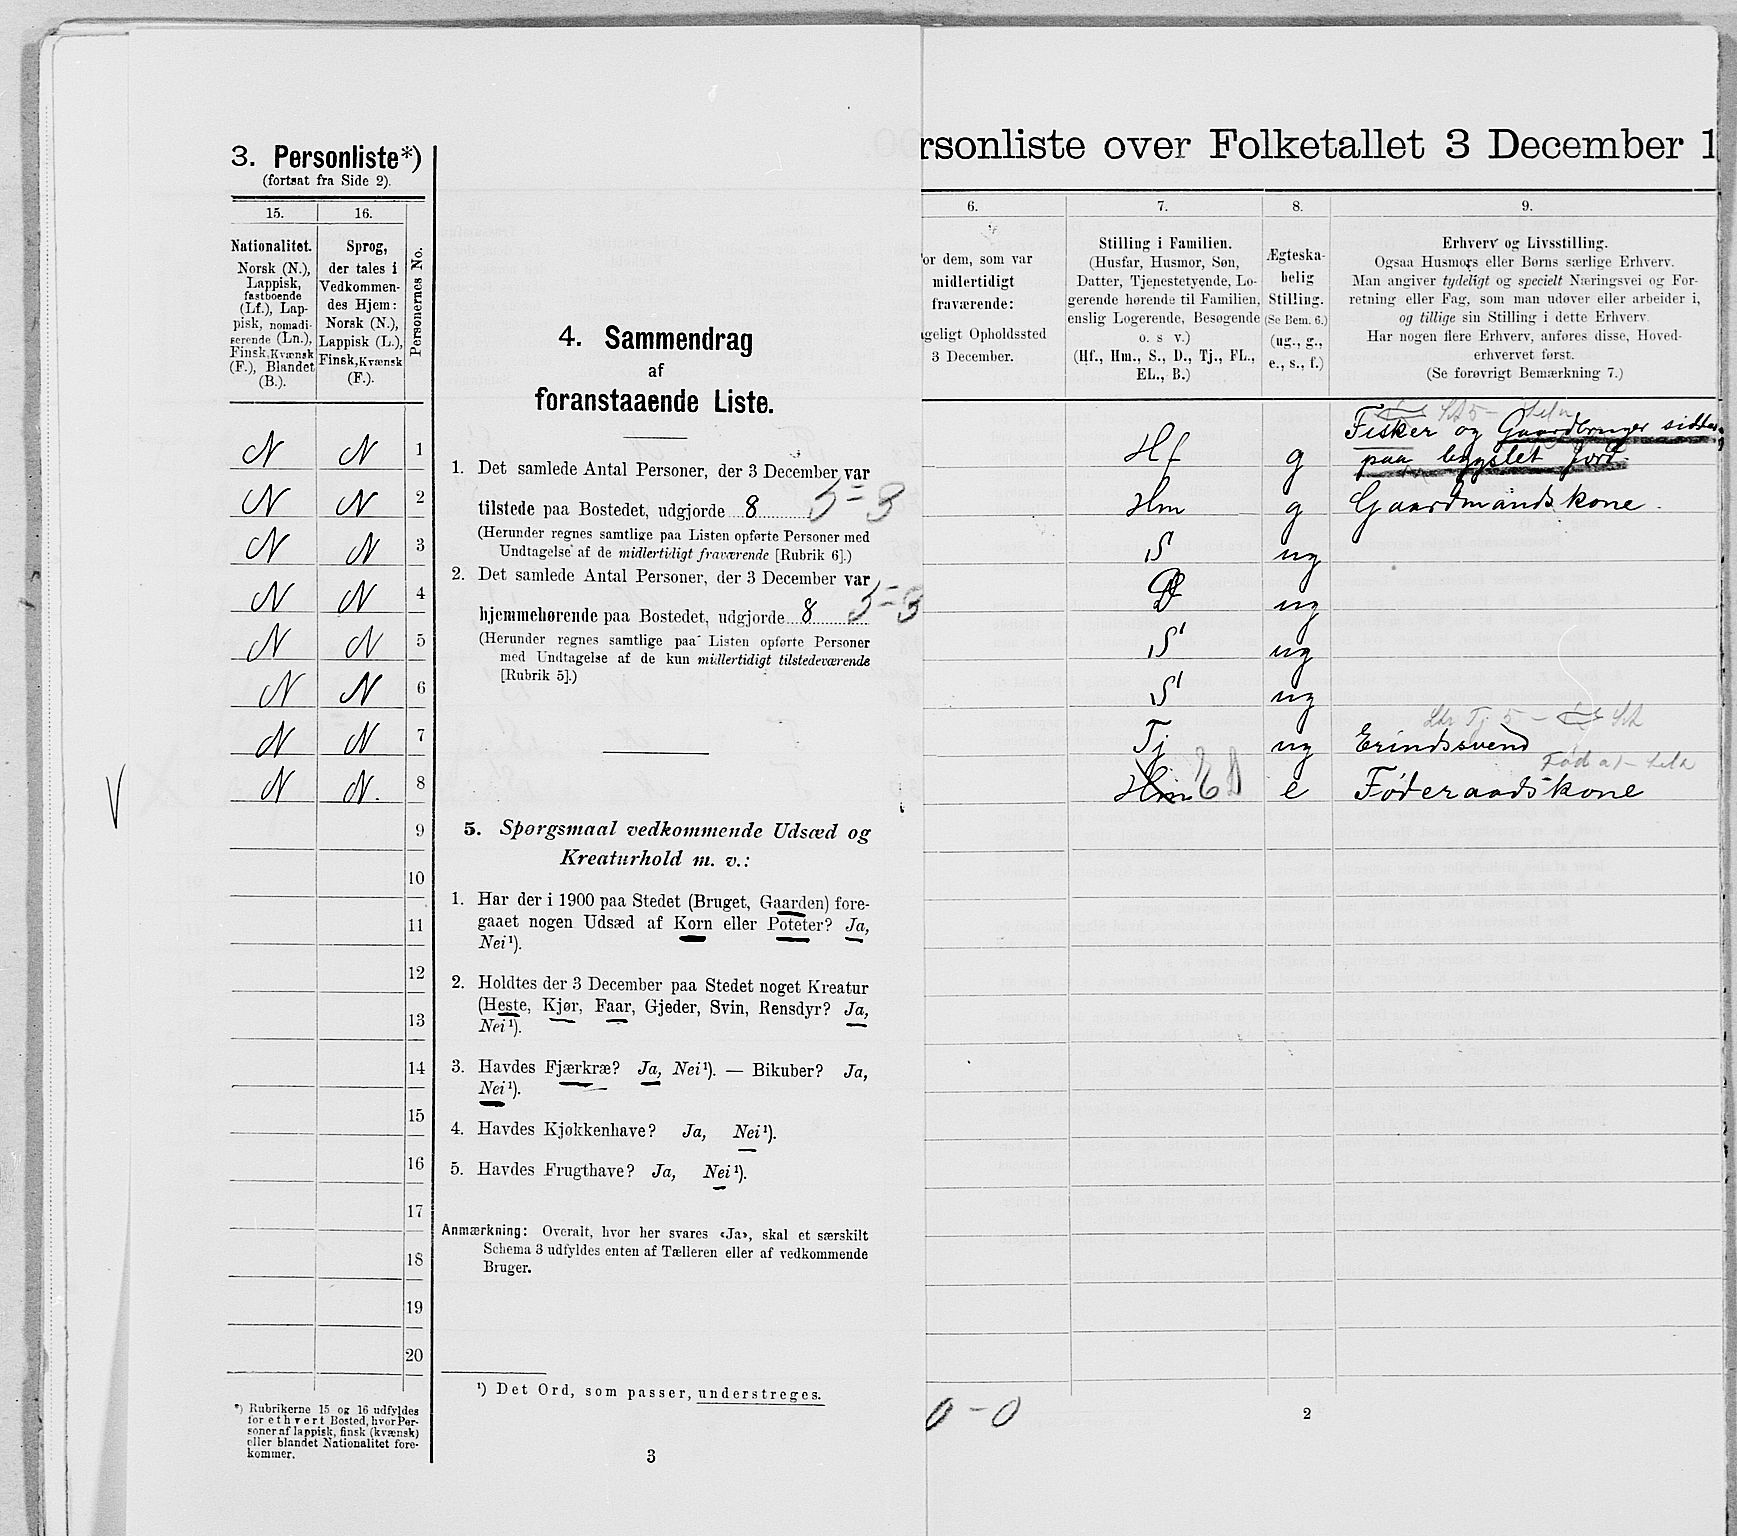 3. Personliste*)
(fortsat fra Side 2).
15.
16.
Personernes No.
Nationalitet.
Norsk (N.),
Lappisk,
fastboende
(Lf.), Lap-
pisk, nomadi-
serende (Ln.),
Finsk, Kvænsk
(F.), Blandet
(B.).
Sprog,
der tales i
Vedkommen-
des Hjem:
Norsk (N.),
Lappisk (L.),
Finsk, Kvænsk
(F.).
N N 1
N N 2
N N 3
N N 4
N N 5
N N 6
N N 7
N N. 8
9
10
11
12
13
14
15
16
17
18
19
20
*) Rubrikerne 15 og 16 udfyldes
for ethvert Bosted, hvor Per-
soner af lappisk, finsk (kvænsk)
eller blandet Nationalitet fore-
kommer.
V
4. Sammendrag
af
foranstaaende Liste.
1. Det samlede Antal Personer, der 3 December var
tilstede paa Bostedet, udgjorde 8 5=3
(Herunder regnes samtlige paa Listen opførte Personer med
Undtagelse af de midlertidigt fraværende [Rubrik 6].)
2. Det samlede Antal Personer, der 3 December var
hjemmehørende paa Bostedet, udgjorde 8 5=3
(Herunder regnes samtlige paa Listen opførte Personer
med Undtagelse af de kun midlertidigt tilstedeværende
[Rubrik 5].)
5. Spørgsmaal vedkommende Udsæd og
Kreaturhold m. v.:
1. Har der i 1900 paa Stedet (Bruget, Gaarden) fore-
gaaet nogen Udsæd af Korn eller Poteter? Ja,
Nei¹).
2. Holdtes der 3 December paa Stedet noget Kreatur
(Heste, Kjør, Faar, Gjeder, Svin, Rensdyr? Ja,
Nei¹).
3. Havdes Fjærkræ? Ja, Nei¹). — Bikuber? Ja,
Nei¹).
4. Havdes Kjøkkenhave? Ja, Nei¹).
5. Havdes Frugthave? Ja, Nei¹).
Anmærkning: Overalt, hvor her svares «Ja», skal et særskilt
Schema 3 udfyldes enten af Tælleren eller af vedkommende
Bruger.
¹) Det Ord, som passer, understreges.
3
rsonliste over Folketallet 3 December 1
6.
7.
8.
9.
or dem, som var
midlertidigt
fraværende:
geligt Opholdssted
3 December.
Stilling i Familien.
(Husfar, Husmor, Søn,
Datter, Tjenestetyende, Lo-
gerende hørende til Familien,
enslig Logerende, Besøgende
o. s. v.)
(Hf., Hm., S., D., Tj., FL.,
EL., B.)
Ægteska-
belig
Stilling.
(Se Bem. 6.)
(ug., g.,
e., s., f.)
Erhverv og Livsstilling.
Ogsaa Husmors eller Børns særlige Erhverv.
Man angiver tydeligt og specielt Næringsvei og For-
retning eller Fag, som man udøver eller arbeider i,
og tillige sin Stilling i dette Erhverv.
Har nogen flere Erhverv, anføres disse, Hoved-
erhvervet først.
(Se forøvrigt Bemærkning 7.)
Fisker og Gaardbruger sidder
Hf g paa bygslet Jord.
Hm g Gaardmandskone.
S ug
D ug
S ug
S ug
Tj ug Erindssvend
Hm E D e Føderaadskone
0 - 0
2